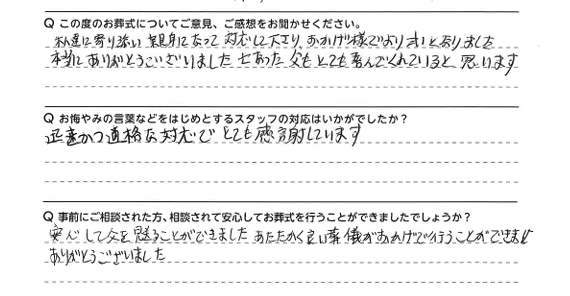 Q この度のお葬式についてご意見、ご感想をお聞かせください。
私達に寄り添い 親身になって 対応して下さり おかげ様でより 式と なりました
本当に ありがとうございました 亡あった 父も とても 喜んでくれていると 思います
Q お悔やみの言葉などをはじめとするスタッフの対応はいかがでしたか？
迅速かつ適格な対応で とても感謝しています
Q 事前にご相談された方、相談されて安心してお葬式を行うことができましたでしょうか？
安心して父を送ることができました あたたかく良い葬儀がおかげで行うことができました
ありがとうございました